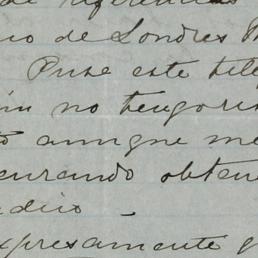 de
io de Londres
Puse este tele
no tengo
aunque me
curando obten
dico
xpresamente q